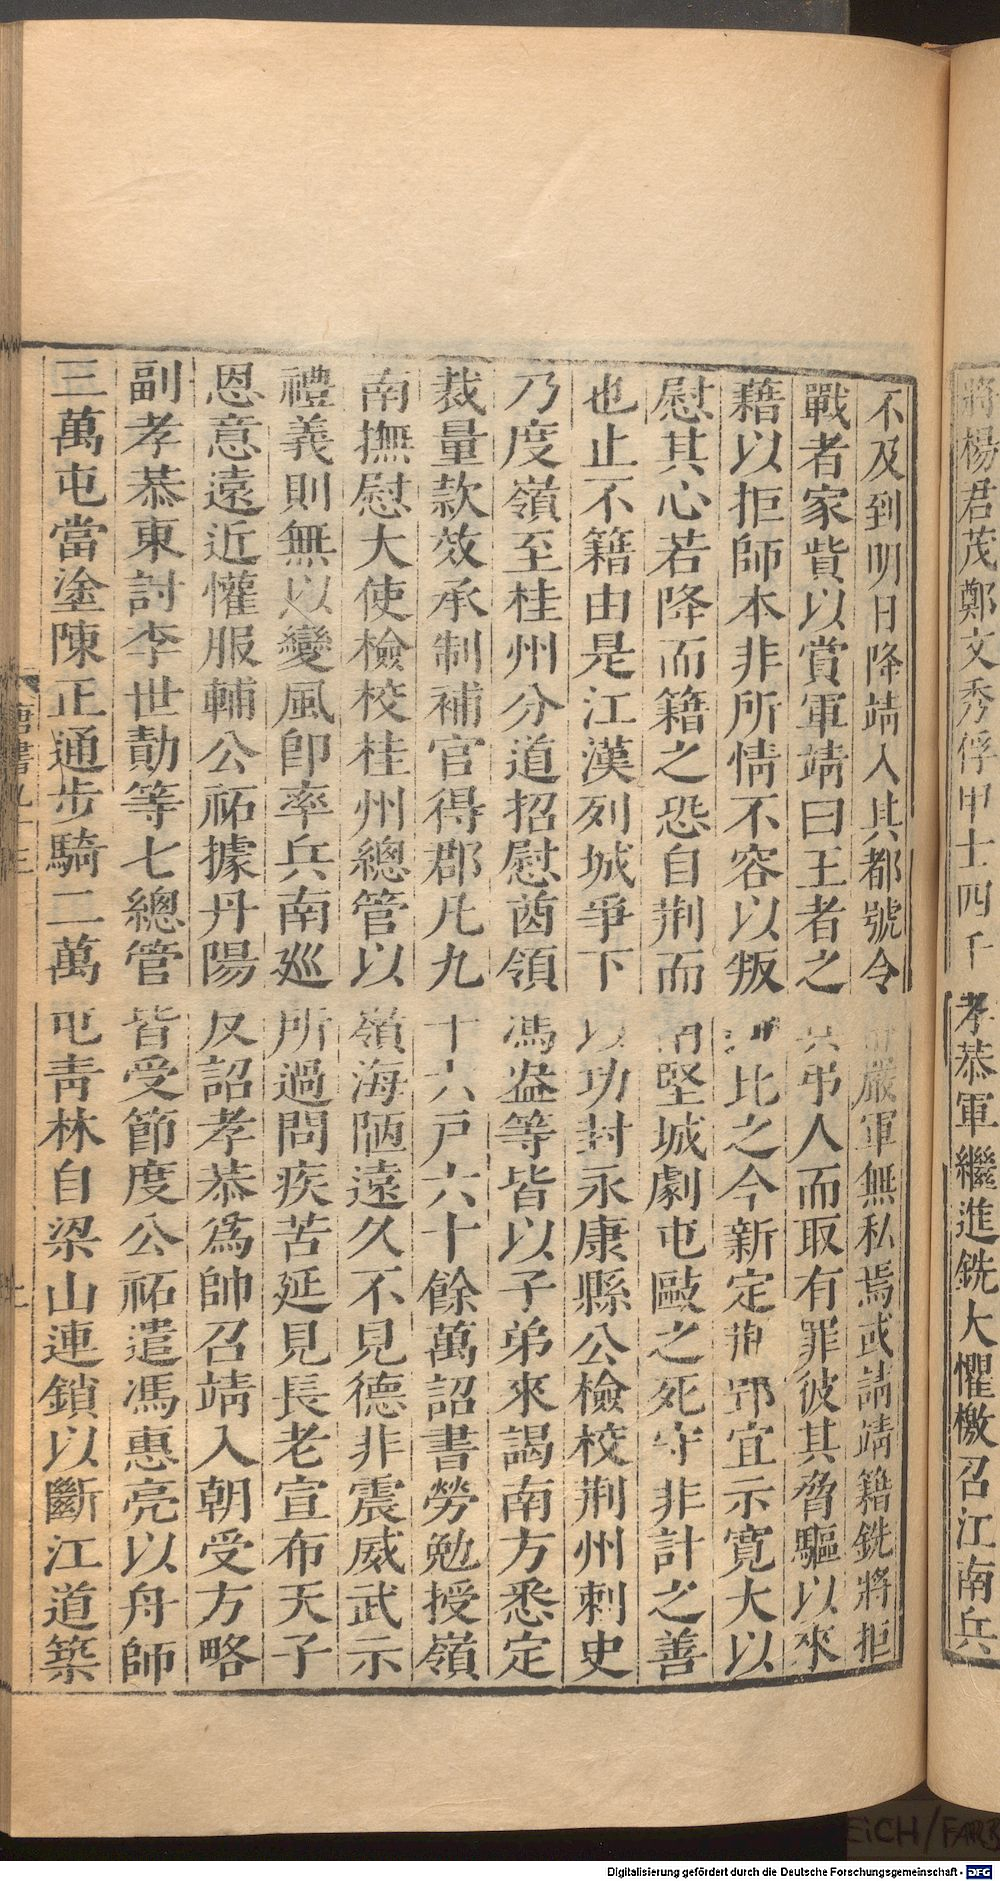 將楊君茂鄭文秀俘甲士四千孝恭軍繼進銑大懼檄召江南兵
不及到明日降靖入其都號令嚴軍無私焉或請靖籍銑將拒
戰者家貲以賞軍靖曰王者之兵弔人而取有罪彼其脅驅以來
藉以拒師本非所情不容以叛逆比之今新定荆郢宜示寛大以
慰其心若降而籍之恐自荆而南堅城劇屯毆之死守非計之善
也止不籍由是江漢列城爭下以功封永康縣公檢校荆州刺史
乃度嶺至桂州分道招慰酋領馮盎等皆以子弟來謁南方悉定
裁量款效承制補官得郡凡九十六戸六十餘萬詔書勞勉授嶺
南撫慰大使檢校桂州總管以嶺海陋遠久不見德非震威武示
禮義則無以變風卽率兵南巡所過問疾苦延見長老宣布天子
恩意遠近懽服輔公祏據丹陽反詔孝恭爲帥召靖入朝受方略
副孝恭東討李世勣等七總管皆受節度公祏遣馮惠亮以舟師
三萬屯當塗陳正通步騎二萬屯靑林自梁山連鎖以斷江道築
唐書九十三